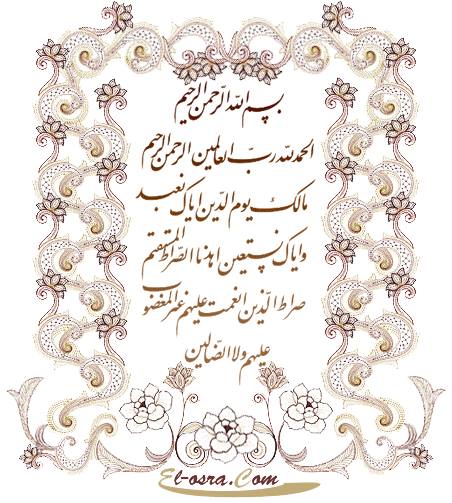 بسم الله الرحمن الرحيم
الحمد لله رب العالمين الرحمن الرحيم
مالك يوم الدين اياك نعبد
واياك نستعين اهدنا الصراط المستقيم
صراط الذين انعمت عليهم غير المغضوب
عليهم ولا الضالين
El-osra.Com